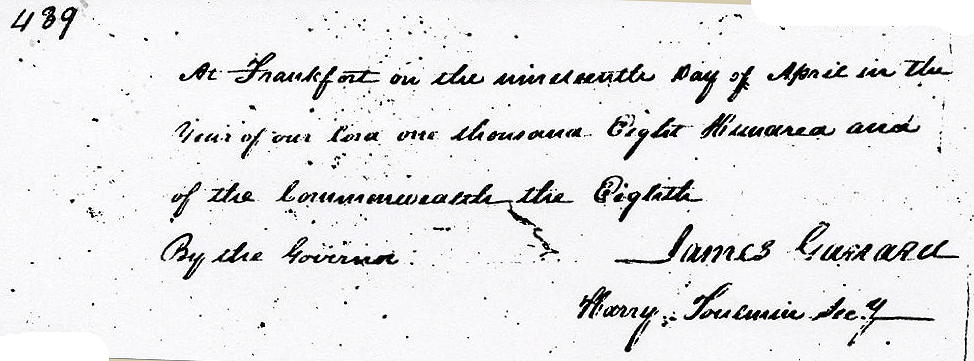 439
At Frankfort on the nineteenth Day of April in the
Year of our lord one thousand Eight Hundred and
of the Commonwealth the Eighth
By the Governor
James Garrard
Harry Toulmin Sec.y